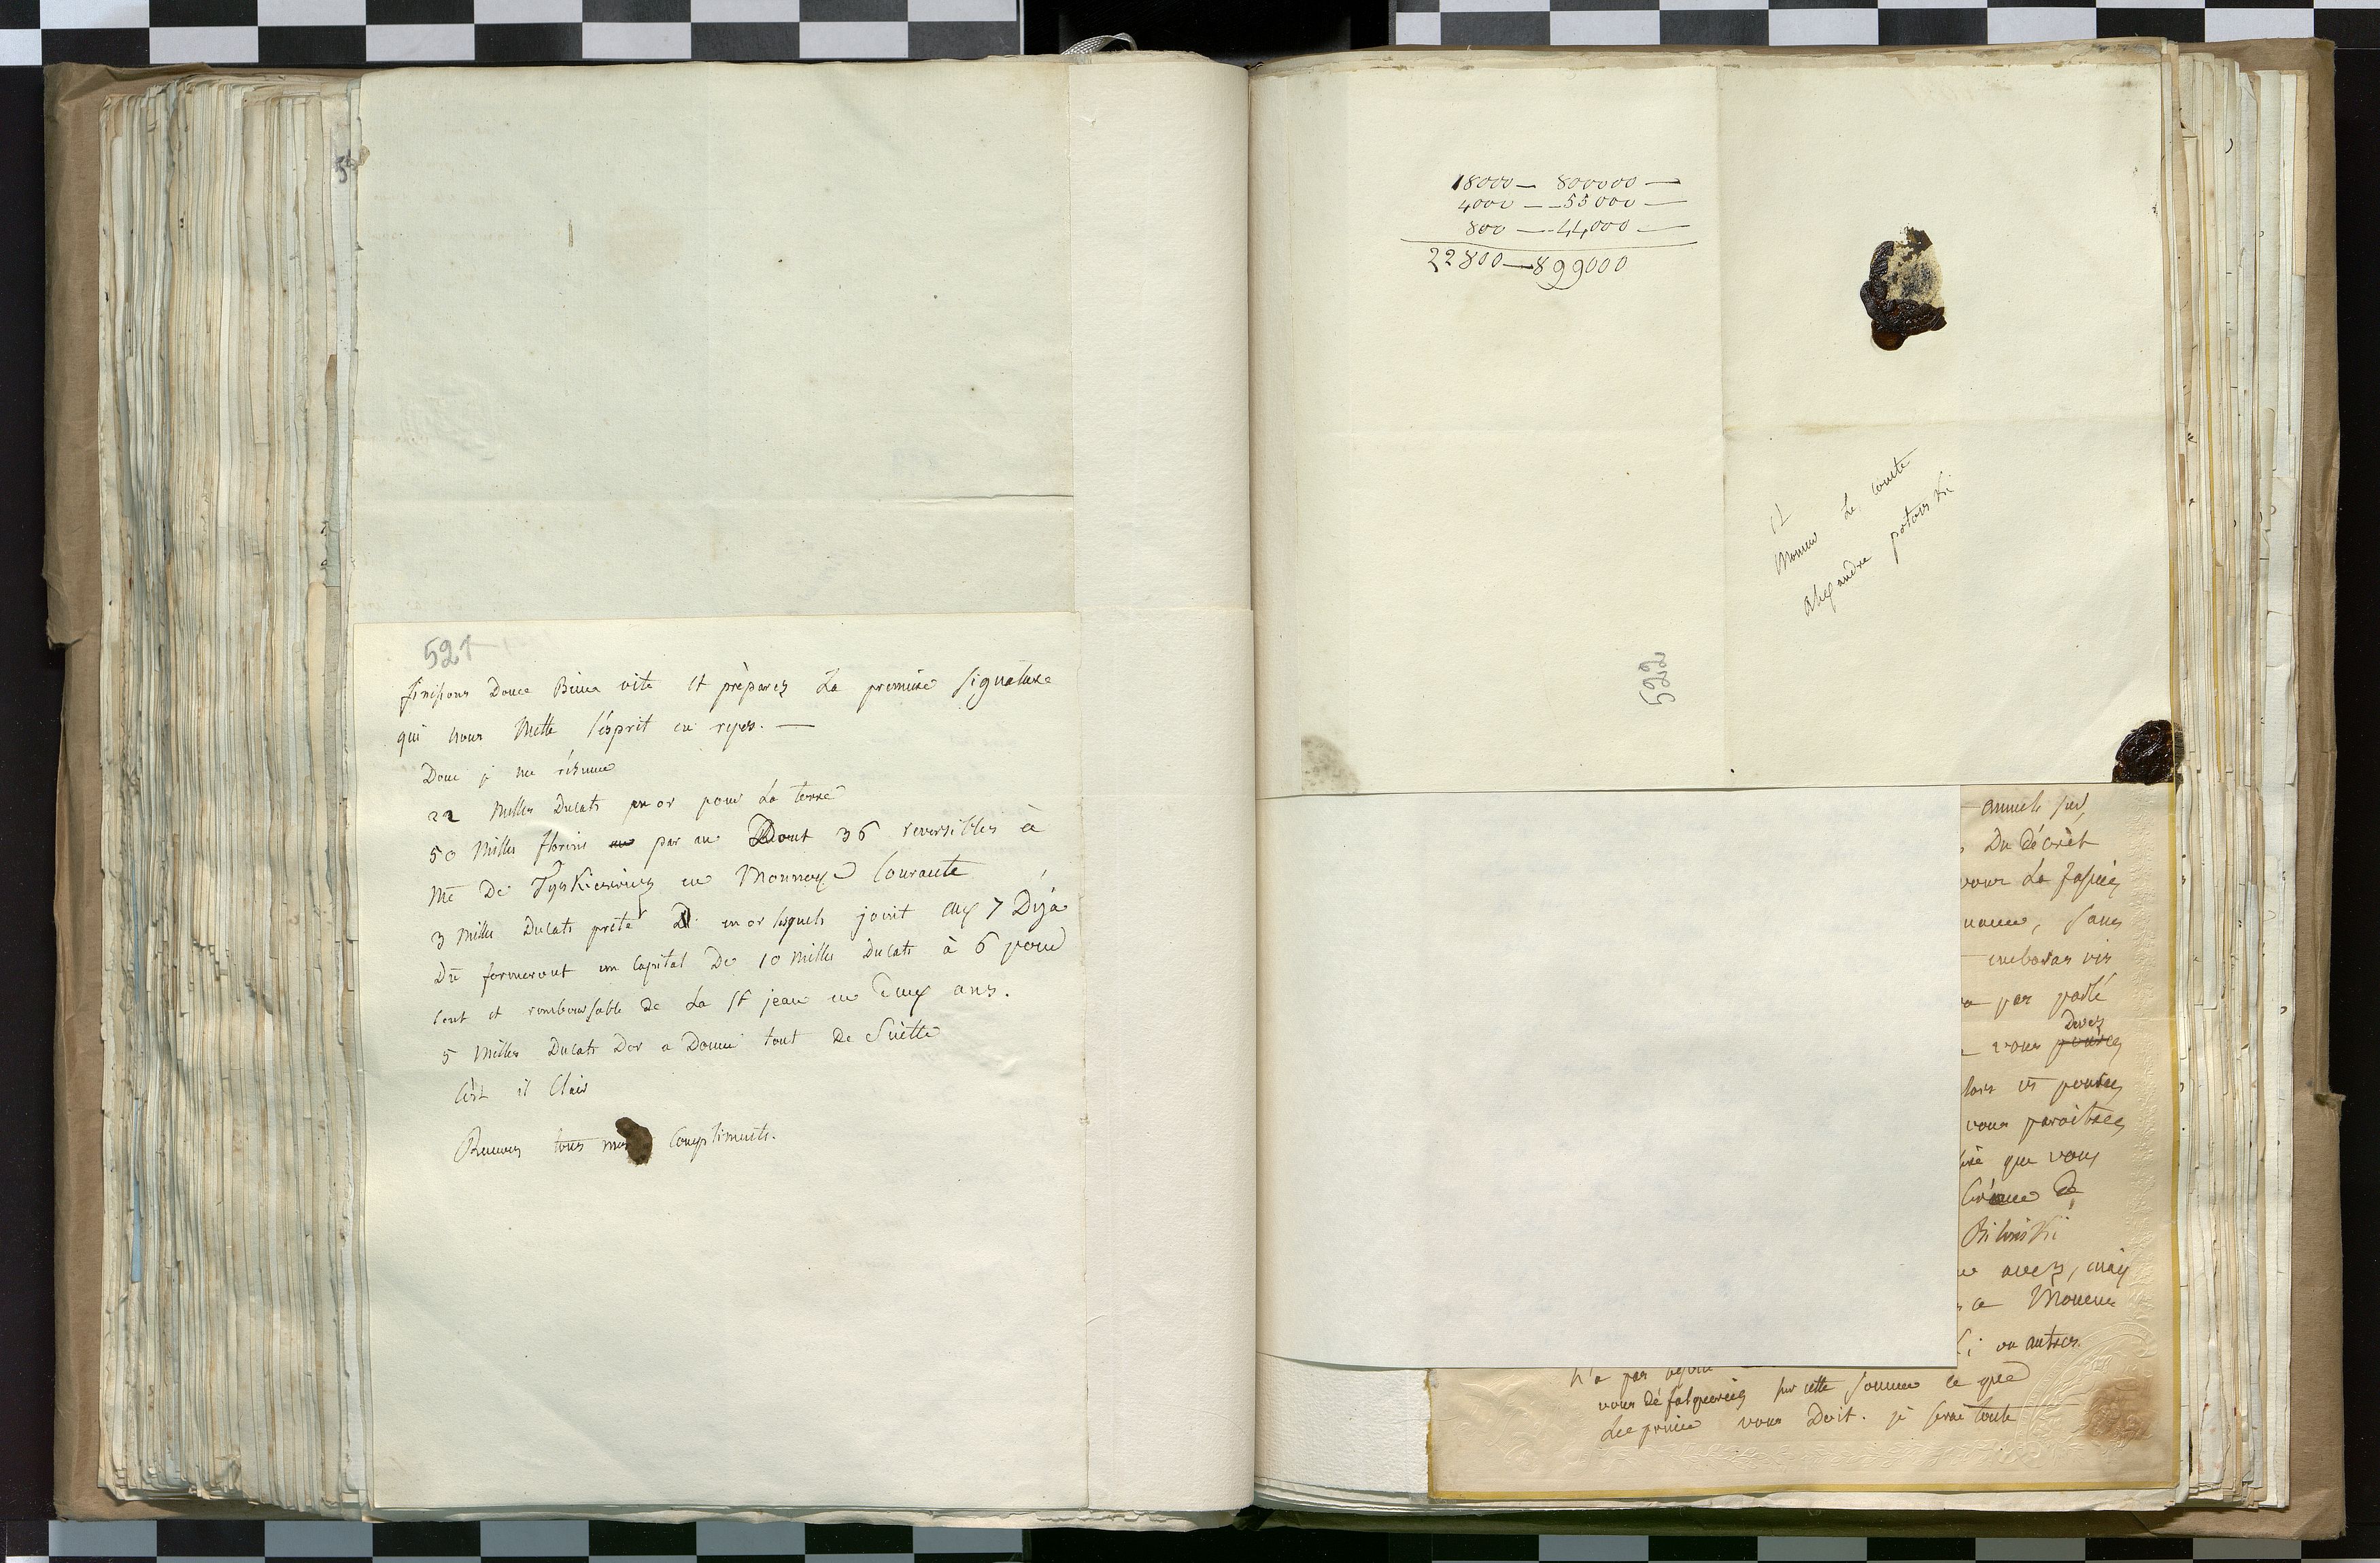 521
finissons Donc Bien vite et préparez La premiere signature
qui nous Mette l'ésprit en repos. —
Donc je me résume
22 Milles Ducats en or pour La terre
50 Milles florins par an Dont 36 reversibles à
Me De Tyskiewicz en Monnoye Courante
3 Milles Ducats prété en or lesquels joint aux 7 Déja
Du formeront un Capital De 10 Milles Ducats à 6 pour
Cent et remboursable de La St jean en Deux ans.
5 Milles Ducats Dor a Donné tout De Suitte
Cést il Clair
Recevez tous mes Compliments.
18000 — 800000 —
4000 — 55000 —
800 — 44000 —
22800 — 899000
Monsieur Le Comte
Alexandre potocki
522
annuels sur
Du Décrèt
vour La fassiez
, sans
embaras vis
par parlé
Devez
vous pouvez
lors et pouvez
vous paroitrez
que vous
Créance De
Bilinski
avez, mais
ce Moment
ou autres.
n'a pas besoin
vous défalqueriez sur cette somme ce que
Le prince vous Doit. je serai toute